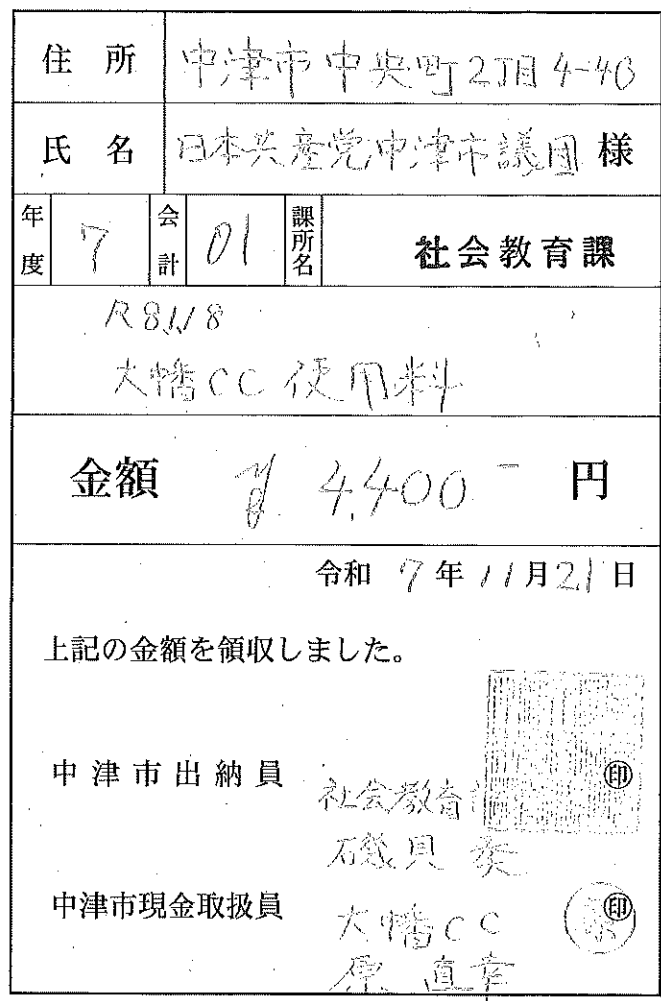 住所 中津市中央町2丁目4-43
氏名 日本共産党中津市議団 様
年度 7 会計 01 課所名 社会教育課
R8.1.18
大幡CC 使用料
金額 ¥4,400- 円
令和 7年 11月21日
上記の金額を領収しました。
中津市出納員 印
社会教育
石磯貝
中津市現金取扱員 大幡CC 印
原 直幸